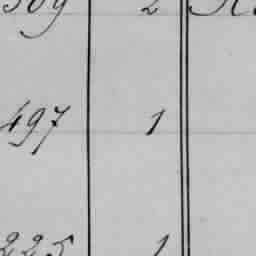 309 2
497 1
225 1